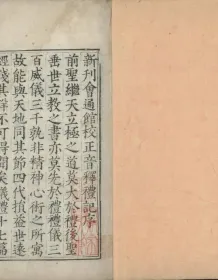 新刊會通館校正音釋禮記序
前聖繼天立極之道莫大於禮後聖
垂世立教之書亦莫先於禮禮儀三
百威儀三千孰非精神心術之所寓
故能與天地同其節四代損益世遠
經殘其詳不可得聞矣儀禮十七篇